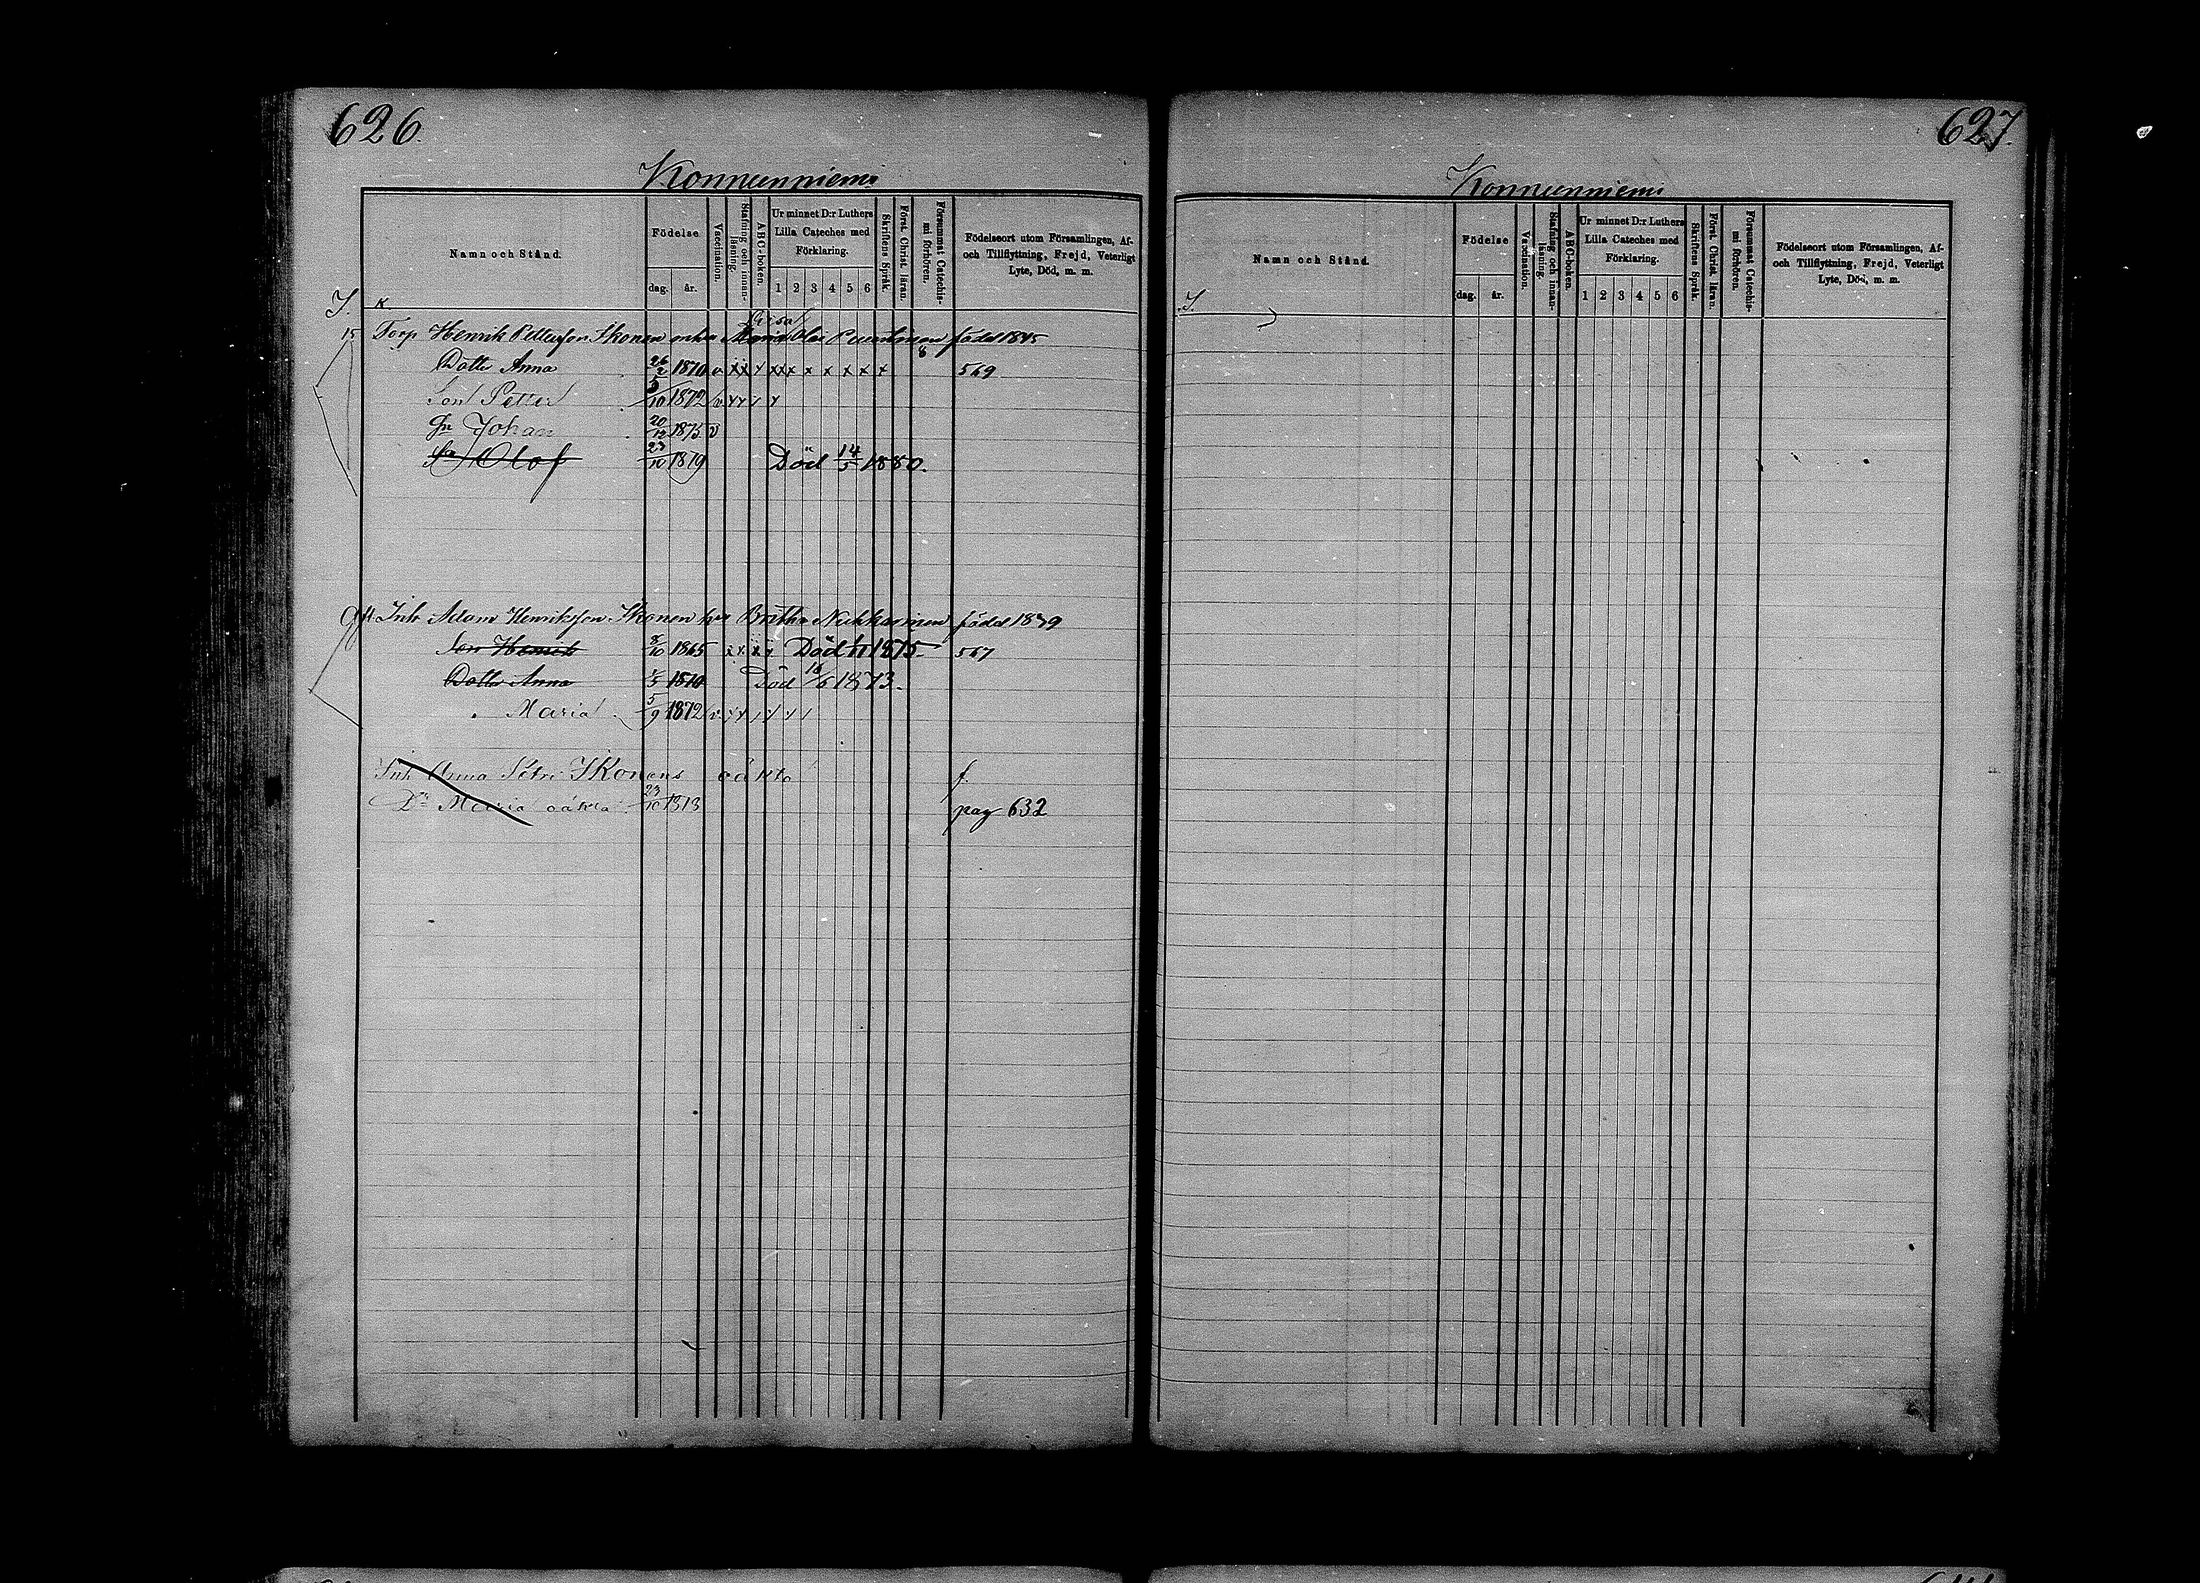 626.
Konnunniemi
Namn och Stånd.
Födelse
dag.
år.
Vaccination.
Stafning och innan-
läsning.
ABC-boken.
Ur minnet D:r Luthers
Lilla Cateches med
Förklaring.
1 2 3 4 5 6
Skriftens Språk.
Först. Christ. läran.
Försummat Catechis-
mi förhören.
Födelseort utom Församlingen, Af-
och Tillflyttning, Frejd, Veterligt
Lyte, Död, m. m.
J. K.
Lisa
15 Torp Henrik Pettersson Ikonen Olai född 1845
Dotter Anna 26/2 1870 v xx y xxx x x x x x 569
Son Petter 5/10 1872 v
Johan 20/12 1875 v
Olof 23/10 1879 Död 14/5 1880.
Inh Adam Henriksson Ikonen Britha född 1839
Son Henrik 8/10 1865 Död 1875. 567
Dotter Anna 1870 Död 16/6 1873.
Maria 5/9 1872 v
Inh Anna Petri Ikonens oäkta f.
Dr Maria oäkta 23/10 pag 632
627.
Konnunniemi
Namn och Stånd.
Födelse
dag.
år.
Vaccination.
Stafning och innan-
läsning.
ABC-boken.
Ur minnet D:r Luthers
Lilla Cateches med
Förklaring.
1 2 3 4 5 6
Skriftens Språk.
Först. Christ. läran.
Försummat Catechis-
mi förhören.
Födelseort utom Församlingen, Af-
och Tillflyttning, Frejd, Veterligt
Lyte, Död, m. m.
J.